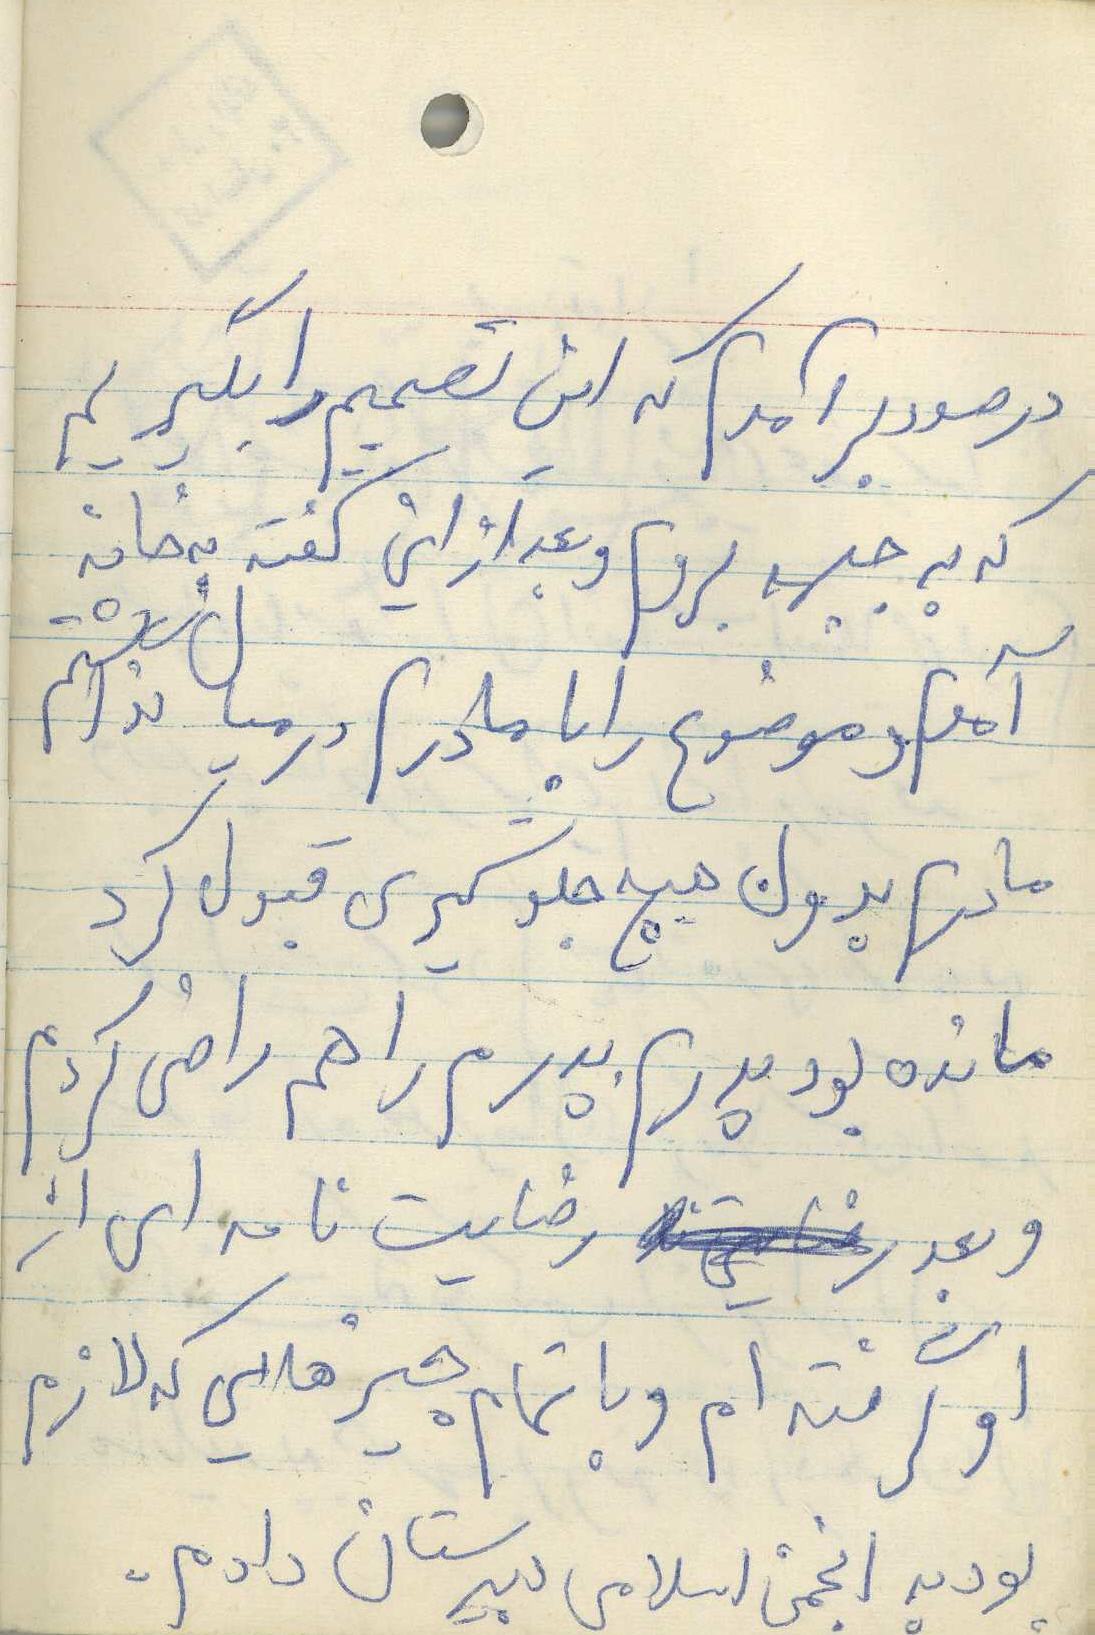 درصودبر آمدم که این تصمیم را بگیریم
که به جبهه بروم و بعد از این گفته به خانه
آمدم و موضوع را با مادرم درمیان گذاشتم
مادرم بدون هیچ جلوگیری قبول کرد
مانده بود پدرم، پدرم را هم راضی کردم
و بعد رضایت نامه ای از
او گرفته ام و با تمام چیزهایی که لازم
بود به انجمن اسلامی دبیرستان دادم.